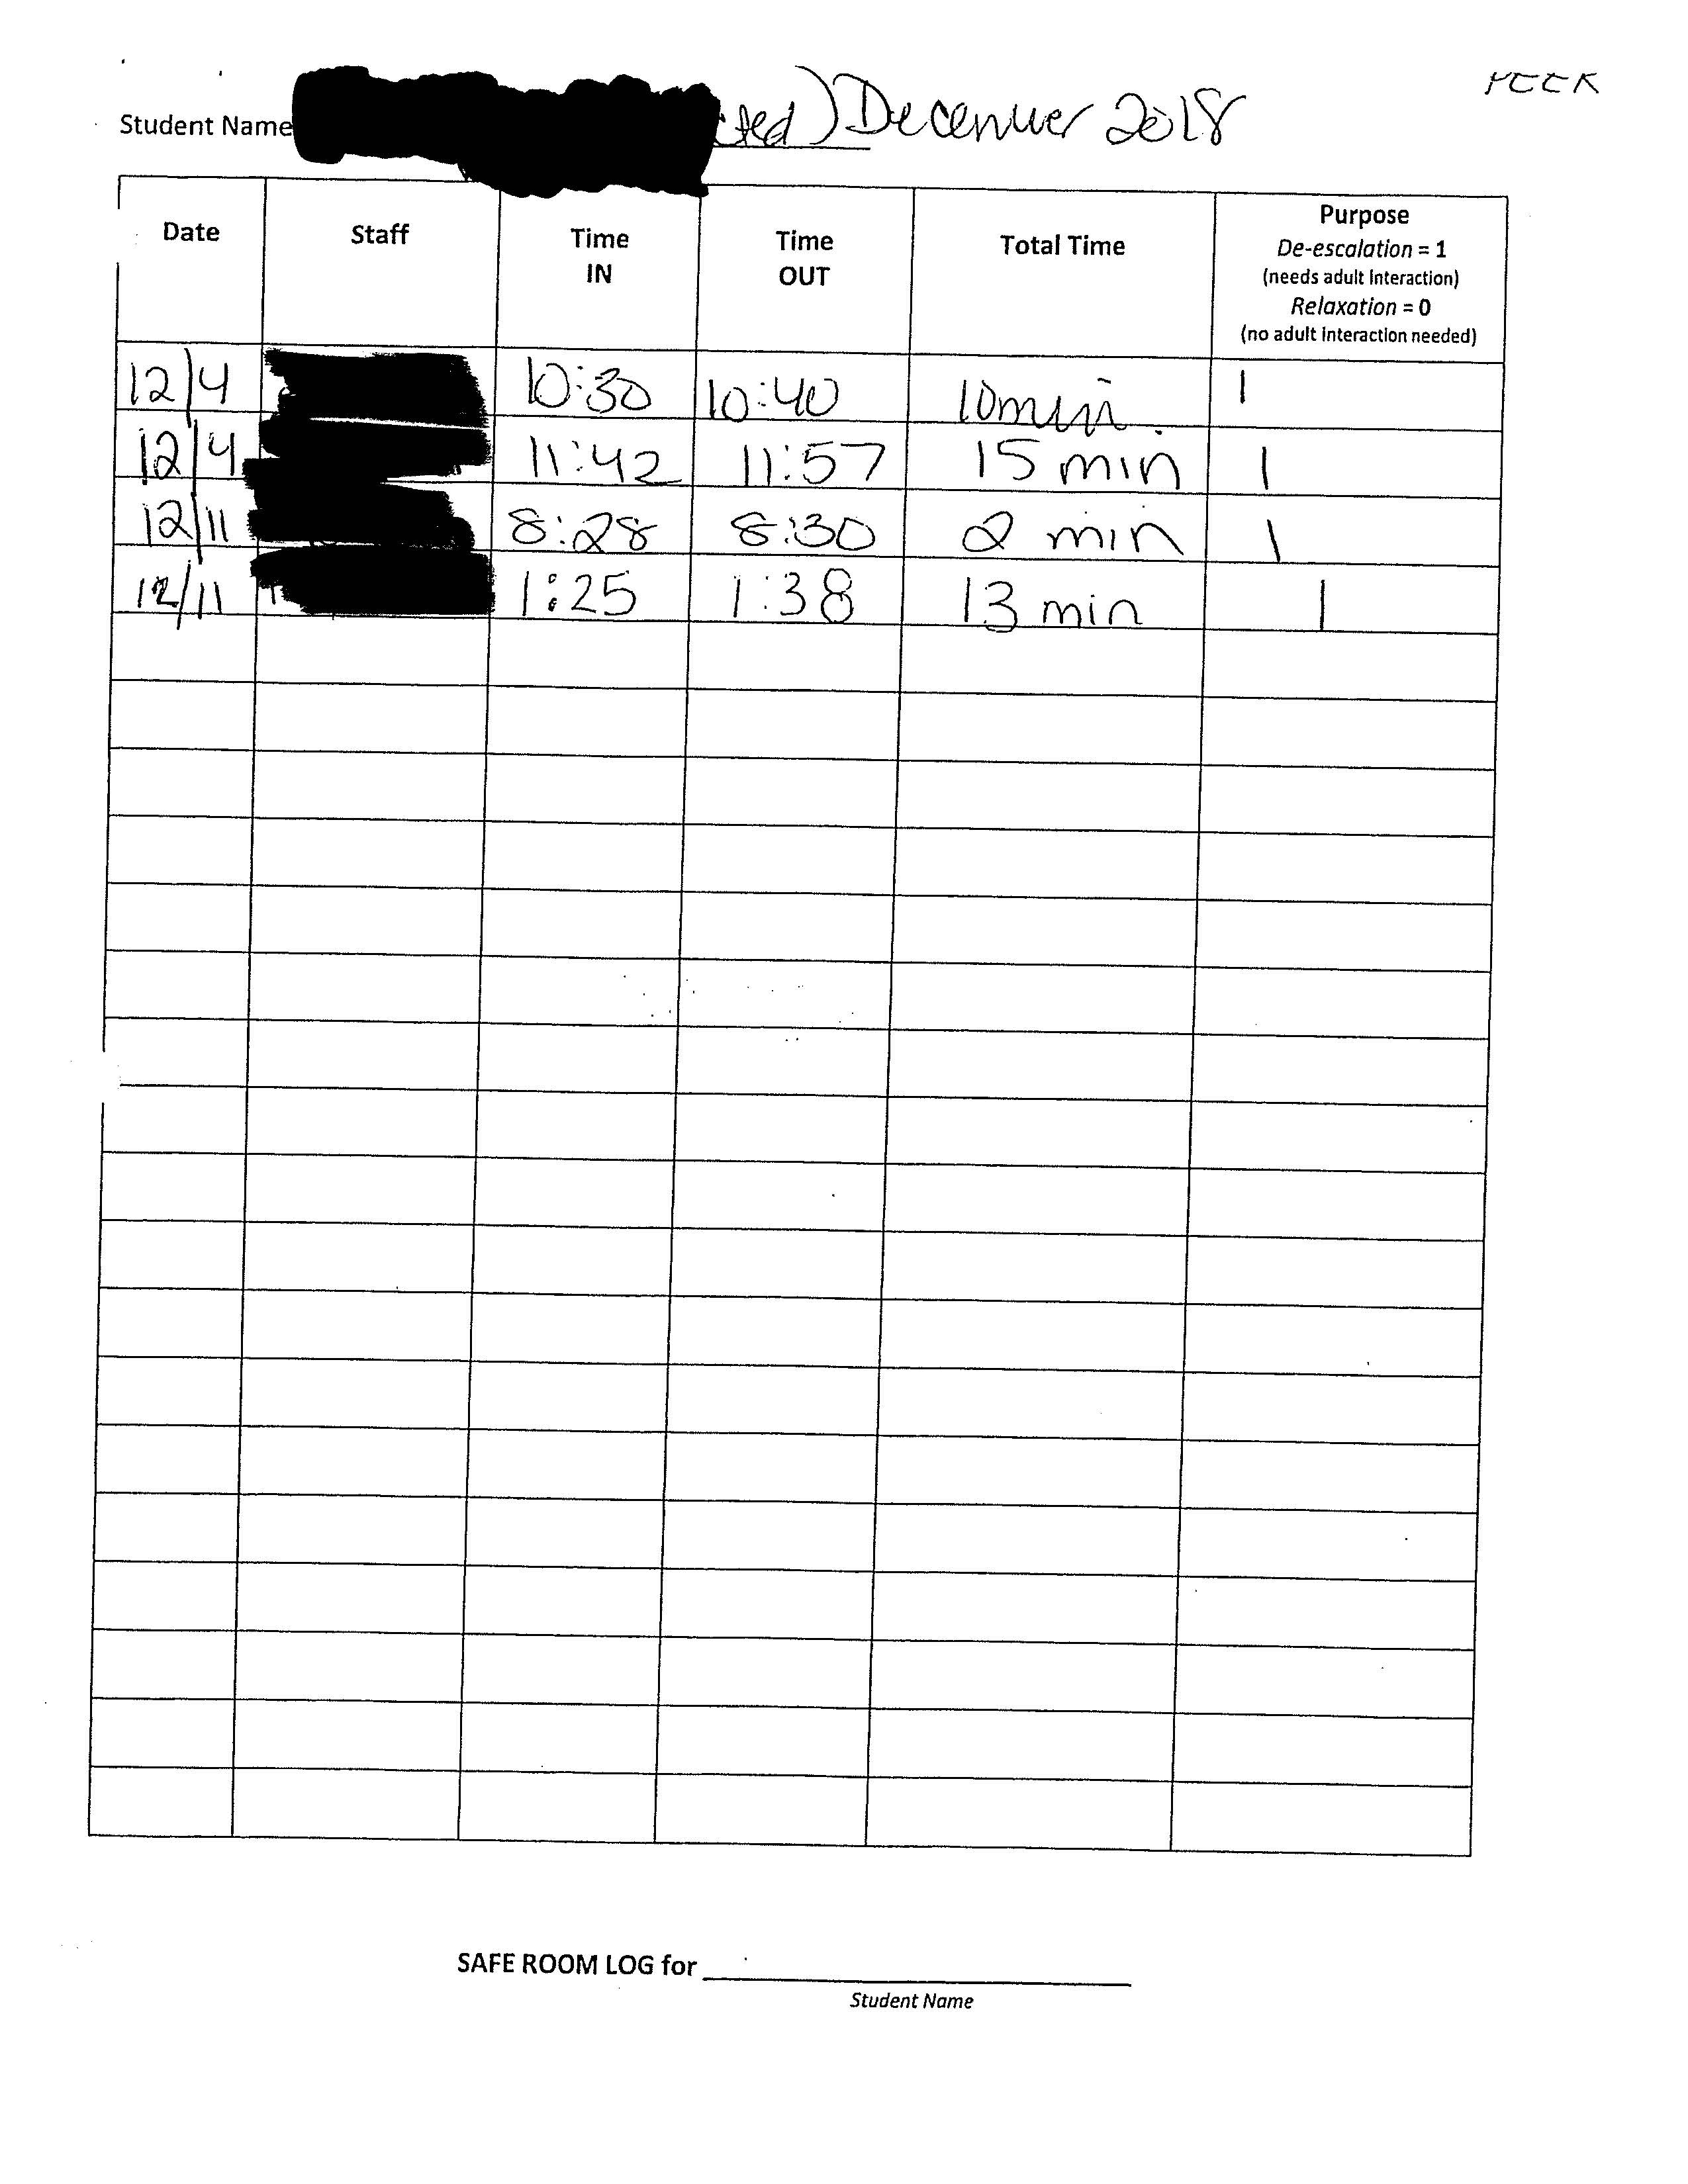 PEEK
Student Name ted) December 2018
Date Staff Time IN Time OUT Total Time Purpose
De-escalation = 1
(needs adult interaction)
Relaxation = 0
(no adult interaction needed)
12/4 10:30 10:40 10 min. 1
12/4 11:42 11:57 15 min 1
12/11 8:28 8:30 2 min 1
12/11 1:25 1:38 13 min 1
SAFE ROOM LOG for
Student Name